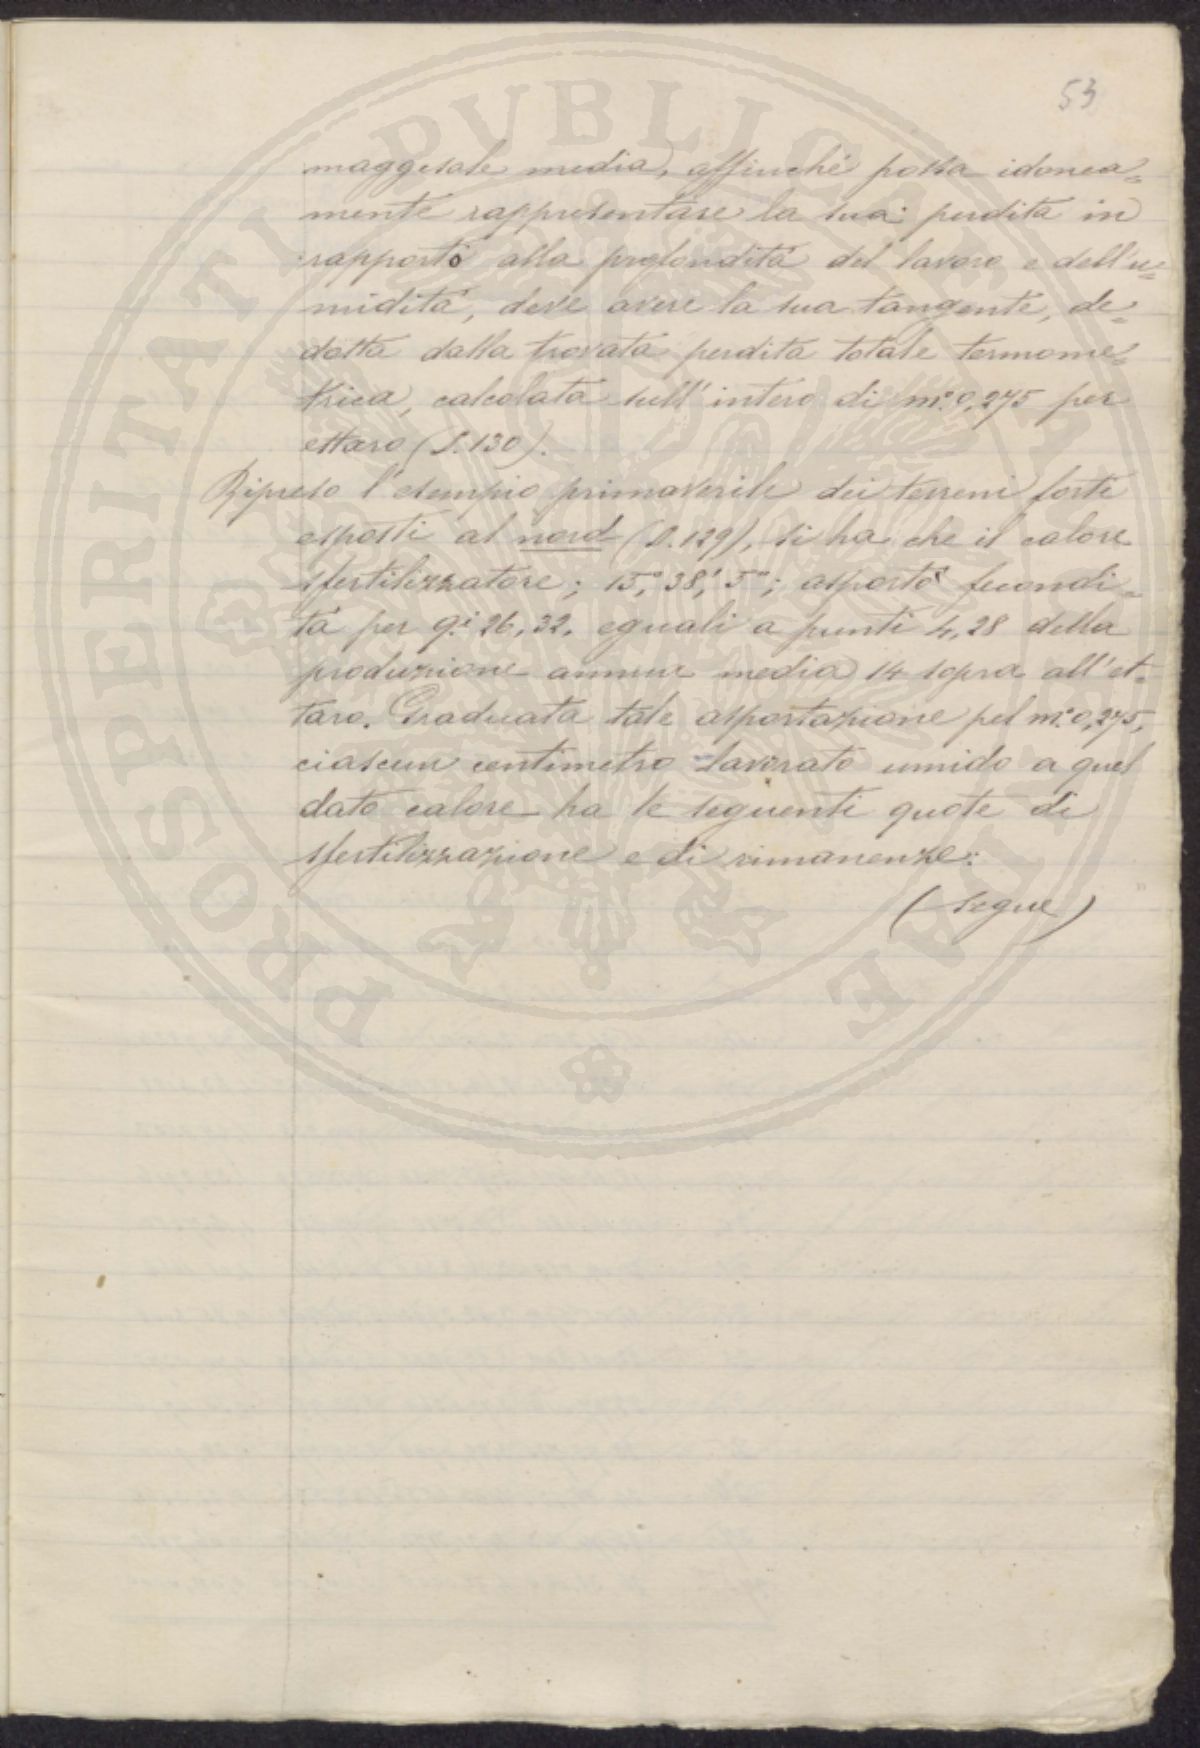 53
maggesale media, affinchè possa idonea=
mente rappresentare la sua perdita in
rapporto alla profondità del lavoro e dell'u=
midità, deve avere la sua tangente, de=
dotta dalla trovata perdita totale termome=
trica, calcolata sull'intero di m.º 0,275 per
ettaro (S. 130).
Ripreso l'esempio primaverile dei terreni forti
esposti al nord (S. 129), si ha che il calore
sfertilizzatore; 15,º 38,' 5"; asportò fecondi=
tà per q.i 26,32, eguali a punti 4,28 della
produzione annua media 14 sopra all'et=
taro. Graduata tale asportazione pel m.º 0,275,
ciascun centimetro lavorato umido a quel
dato calore ha le seguenti quote di
sfertilizzazione e di rimanenze:
(Segue)
PROSPERITATI PUBLICAE